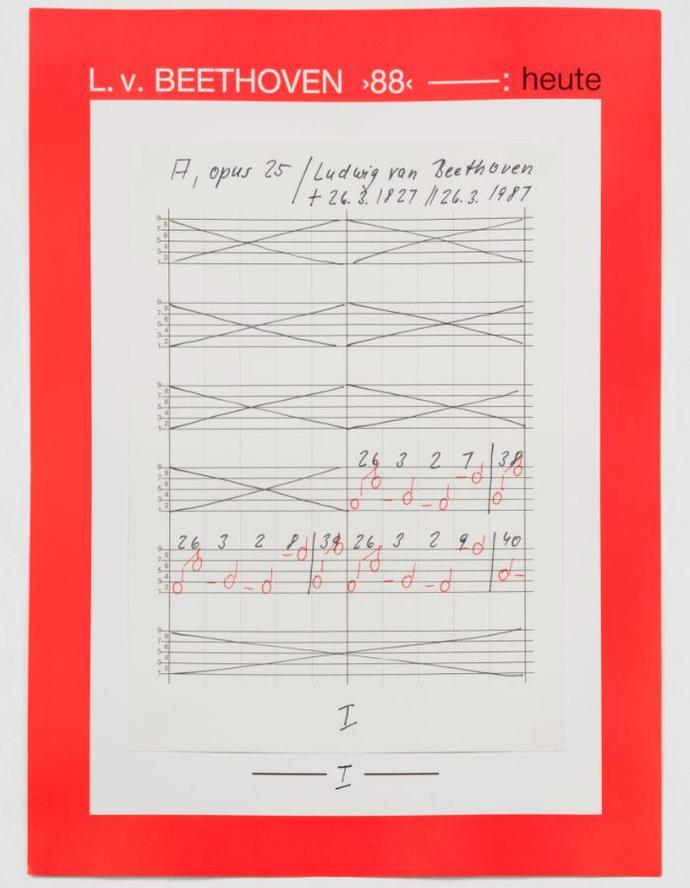 L. v. BEETHOVEN ›88‹ ——: heute
A, opus 25 / Ludwig van Beethoven
+ 26. 3. 1827 // 26. 3. 1987
9 8 7 6 5 4 3 2 1
9 8 7 6 5 4 3 2 1
9 8 7 6 5 4 3 2 1
9 8 7 6 5 4 3 2 1
26 3 2 7 | 38
9 8 7 6 5 4 3 2 1
26 3 2 8 | 39 26 3 2 9 | 40
9 8 7 6 5 4 3 2 1
I
— I —